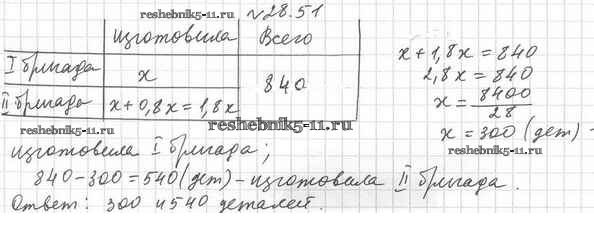 reshebnik5-11.ru №28.51
изготовила Всего
I бригада x 840
II бригада x+0,8x=1,8x
x+1,8x=840
2,8x=840
x=8400/28
x=300 (дет) -
reshebnik5-11.ru
reshebnik5-11.ru
reshebnik5-11.ru
изготовила I бригада;
840-300=540(дет)-изготовила II бригада.
Ответ: 300 и 540 деталей.